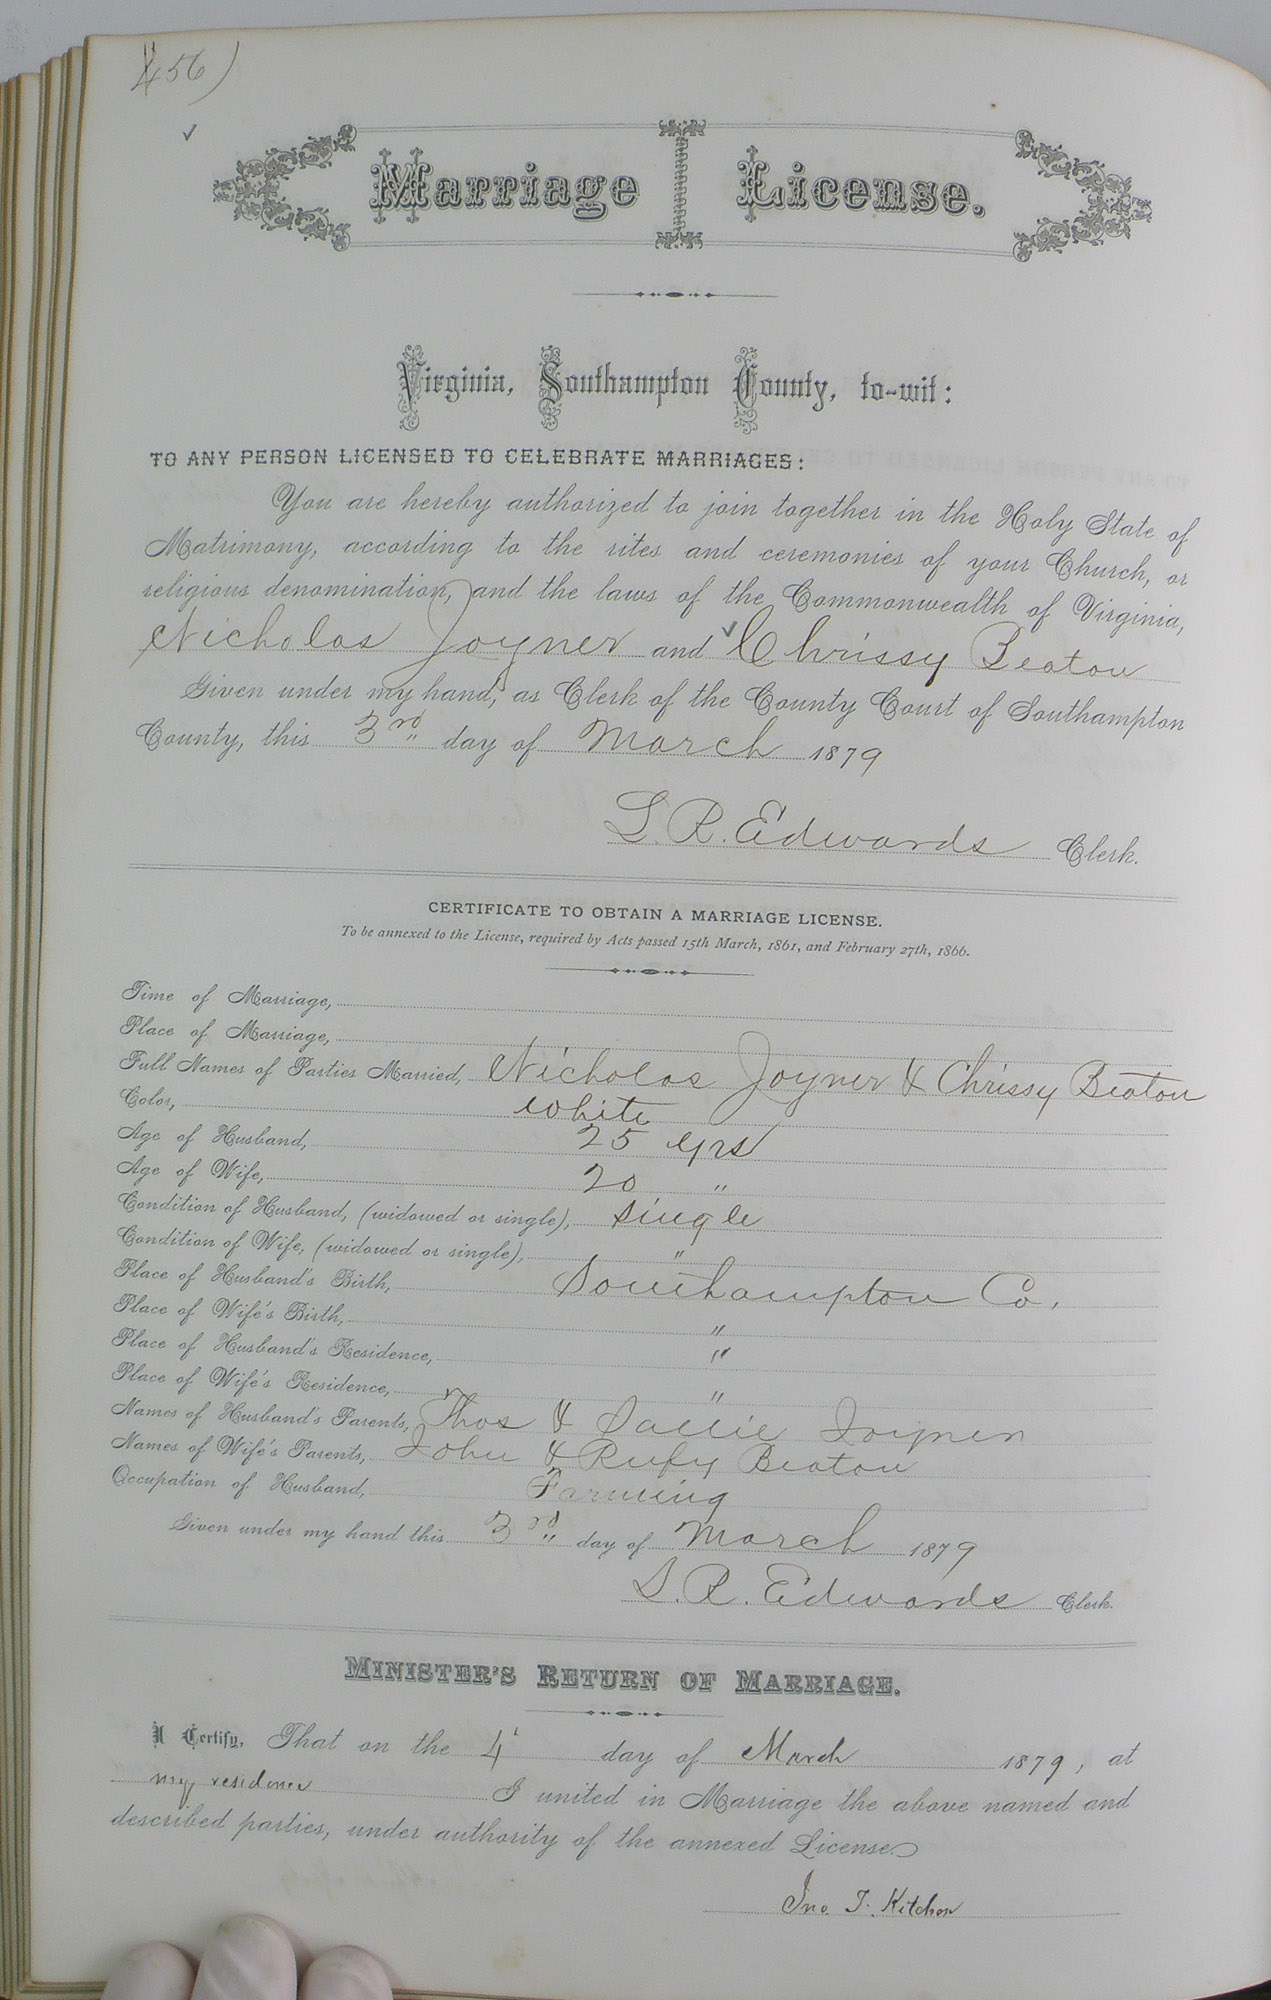 456)
Marriage License.
Virginia, Southampton County, to-wit:
TO ANY PERSON LICENSED TO CELEBRATE MARRIAGES:
You are hereby authorized to join together in the Holy State of
Matrimony, according to the rites and ceremonies of your Church, or
religious denomination, and the laws of the Commonwealth of Virginia,
Nicholas Joyner and Chrissy Beaton
Given under my hand, as Clerk of the County Court of Southampton
County, this 3rd day of March 1879
L. R. Edwards Clerk.
CERTIFICATE TO OBTAIN A MARRIAGE LICENSE.
To be annexed to the License, required by Acts passed 15th March, 1861, and February 27th, 1866.
Time of Marriage,
Place of Marriage,
Full Names of Parties Married, Nicholas Joyner & Chrissy Beaton
Color, white
Age of Husband, 25 yrs
Age of Wife, 20 "
Condition of Husband, (widowed or single), single
Condition of Wife, (widowed or single), "
Place of Husband's Birth, Southampton Co.
Place of Wife's Birth, "
Place of Husband's Residence, "
Place of Wife's Residence, "
Names of Husband's Parents, Thos & Sallie Joyner
Names of Wife's Parents, John & Rufy Beaton
Occupation of Husband, Farming
Given under my hand this 3rd day of March 1879
L. R. Edwards Clerk.
MINISTER'S RETURN OF MARRIAGE.
I Certify, That on the 4' day of March 1879, at
my residence I united in Marriage the above named and
described parties, under authority of the annexed License.
Jno. T. Kitchen